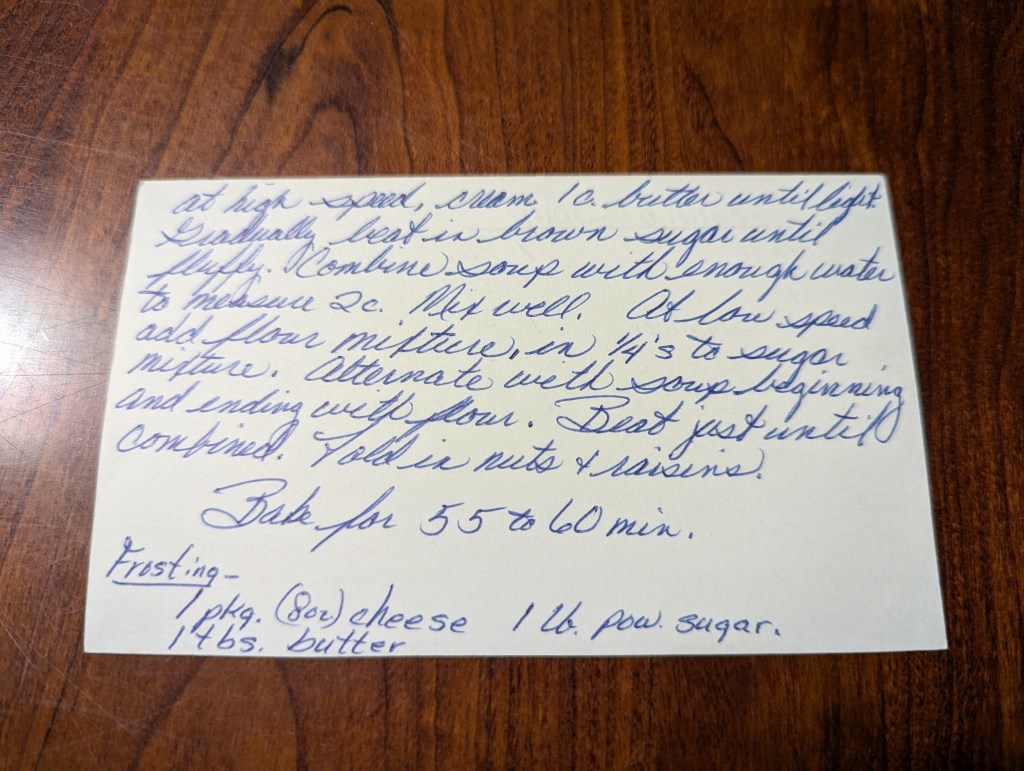 at high speed, cream 1 c. butter until light.
Gradually beat in brown sugar until
fluffy. Combine soup with enough water
to measure 2c. Mix well. At low speed
add flour mixture, in 1/4's to sugar
mixture. Alternate with soup beginning
and ending with flour. Beat just until
combined. Fold in nuts + raisins.
Bake for 55 to 60 min.
Frosting -
1 pkg. (8oz) cheese 1 lb. pow. sugar.
1 tbs. butter